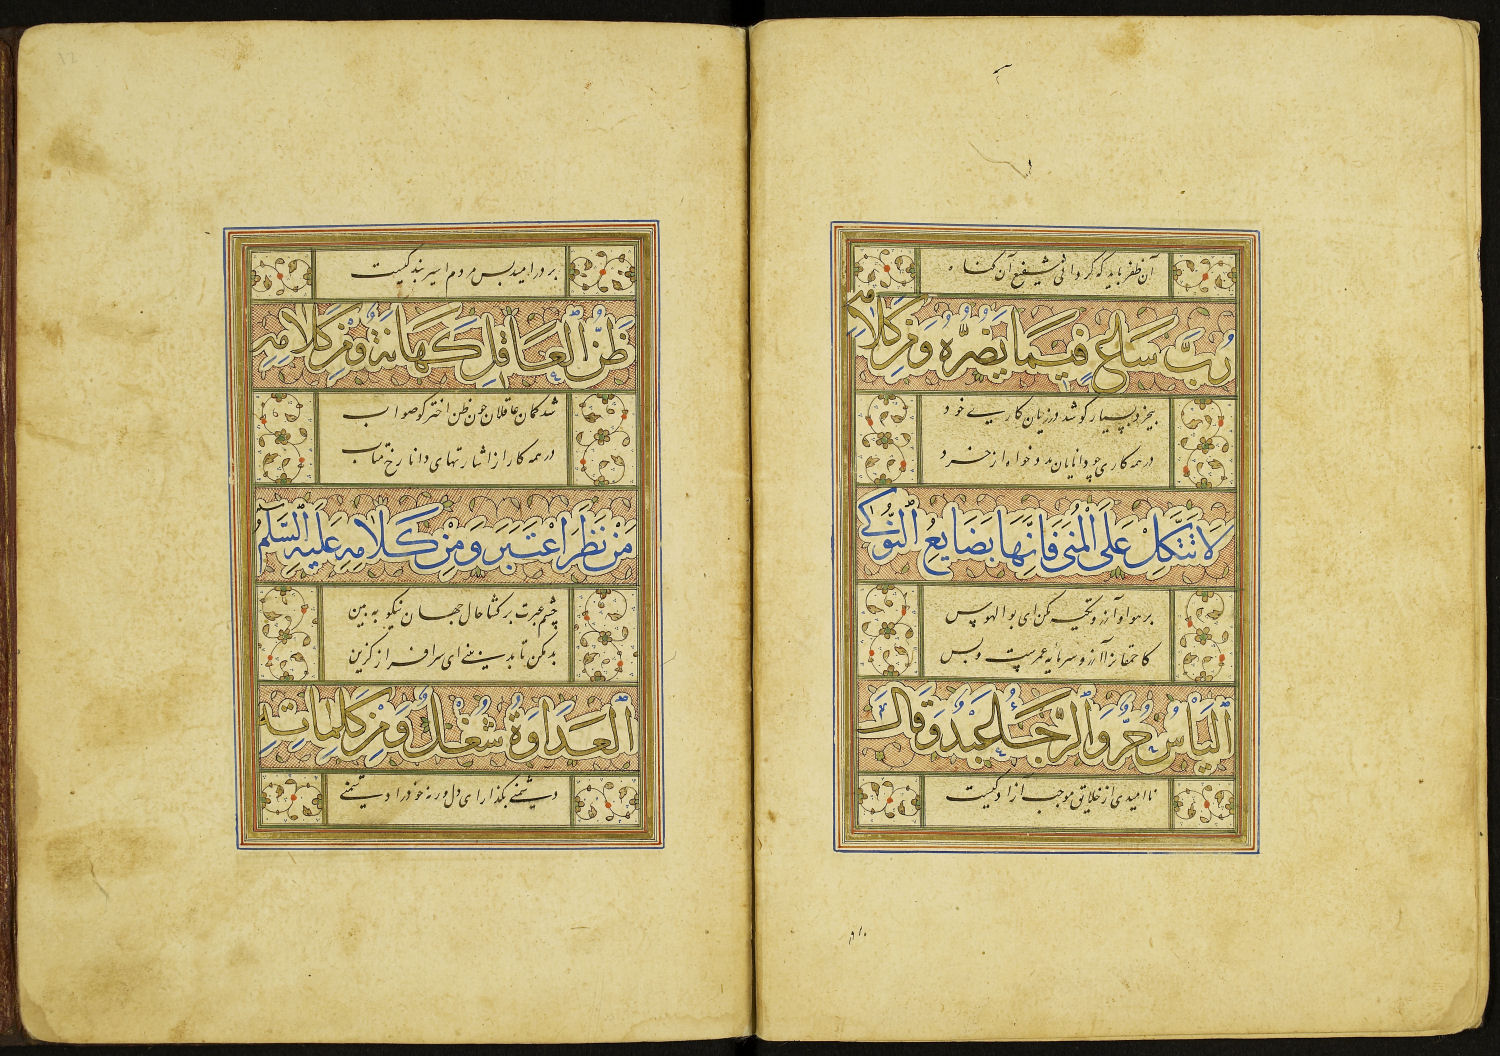 آن ظفر باید که گردانی شفیع آن گناه
رُبَّ سَاعٍ فِيمَا يَضُرُّهُ وَمِنْ كَلَامِهِ
بیخرد بسیار کوشد در زیان کاری خود
در همه کاری چو دانایان مدد خواه از خرد
لَا تَتَّكِلْ عَلَى الْمُنَى فَإِنَّهَا بَضَايِعُ النَّوْكَى
بر هوا و آرزو تکیه مکن ای بوالهوس
کاحمقانرا آرزو سرمایه عمرست و بس
الْيَأْسُ حُرٌّ وَالرَّجَاءُ عَبْدٌ وَقَالَ
ناامیدی از خلایق موجب آزادگیست
بر در امید بس مردم اسیر بندگیست
ظَنُّ الْعَاقِلِ كَهَانَةٌ وَمِنْ كَلَامِهِ
شد گمان عاقلان چون ظن اختر گو صواب
در همه کار از اشارتهای دانا رخ متاب
مَنْ نَظَرَ اعْتَبَرَ وَمِنْ كَلَامِهِ عَلَيْهِ السَّلَم
چشم عبرت برگشا حال جهان نیکو به بین
بد مکن تا بد نبینی ای سرافراز گزین
الْعَدَاوَةُ شُغْلٌ وَمِنْ كَلِمَاتِهِ
دشمنی بگذار ای دل ورنه خود را دشمنی